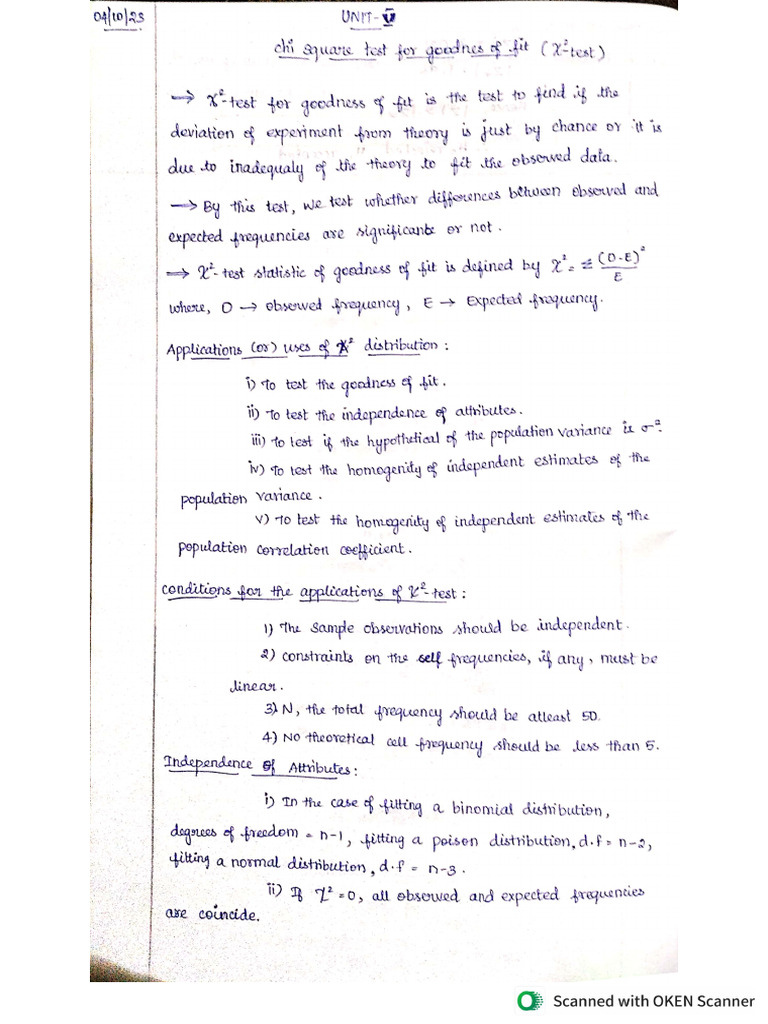 04/10/23
UNIT-V
chi square test for goodnes of fit (χ²-test)
→ χ²-test for goodness of fit is the test to find if the
deviation of experiment from theory is just by chance or it is
due to inadequaly of the theory to fit the observed data.
→ By this test, we test whether differences between observed and
expected frequencies are significante or not.
→ χ²-test statistic of goodness of fit is defined by χ² = Σ (O-E)²/E
where, O → observed frequency, E → Expected frequency.
Applications (or) uses of χ² distribution :
i) To test the goodness of fit.
ii) To test the independence of attributes.
iii) to test if the hypothetical of the population variance is σ².
iv) To test the homogenity of independent estimates of the
population variance.
v) To test the homogenity of independent estimates of the
population correlation coefficient.
conditions for the applications of χ²-test :
1) The sample observations should be independent.
2) constraints on the self frequencies, if any, must be
linear.
3) N, the total frequency should be atleast 50.
4) No theoretical cell frequency should be less than 5.
Independence of Attributes :
i) In the case of fitting a binomial distribution,
degrees of freedom = n-1, fitting a poison distribution, d.f = n-2,
fitting a normal distribution, d.f = n-3.
ii) If χ² = 0, all observed and expected frequencies
are coincide.
Scanned with OKEN Scanner